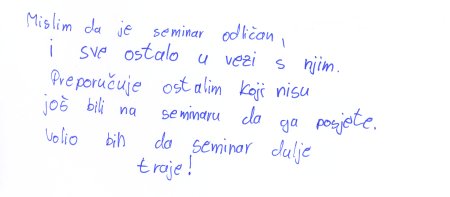 Mislim da je seminar odličan,
i sve ostalo u vezi s njim.
Preporučuje ostalim koji nisu
još bili na seminaru da ga posjete.
Volio bih da seminar dulje
traje!